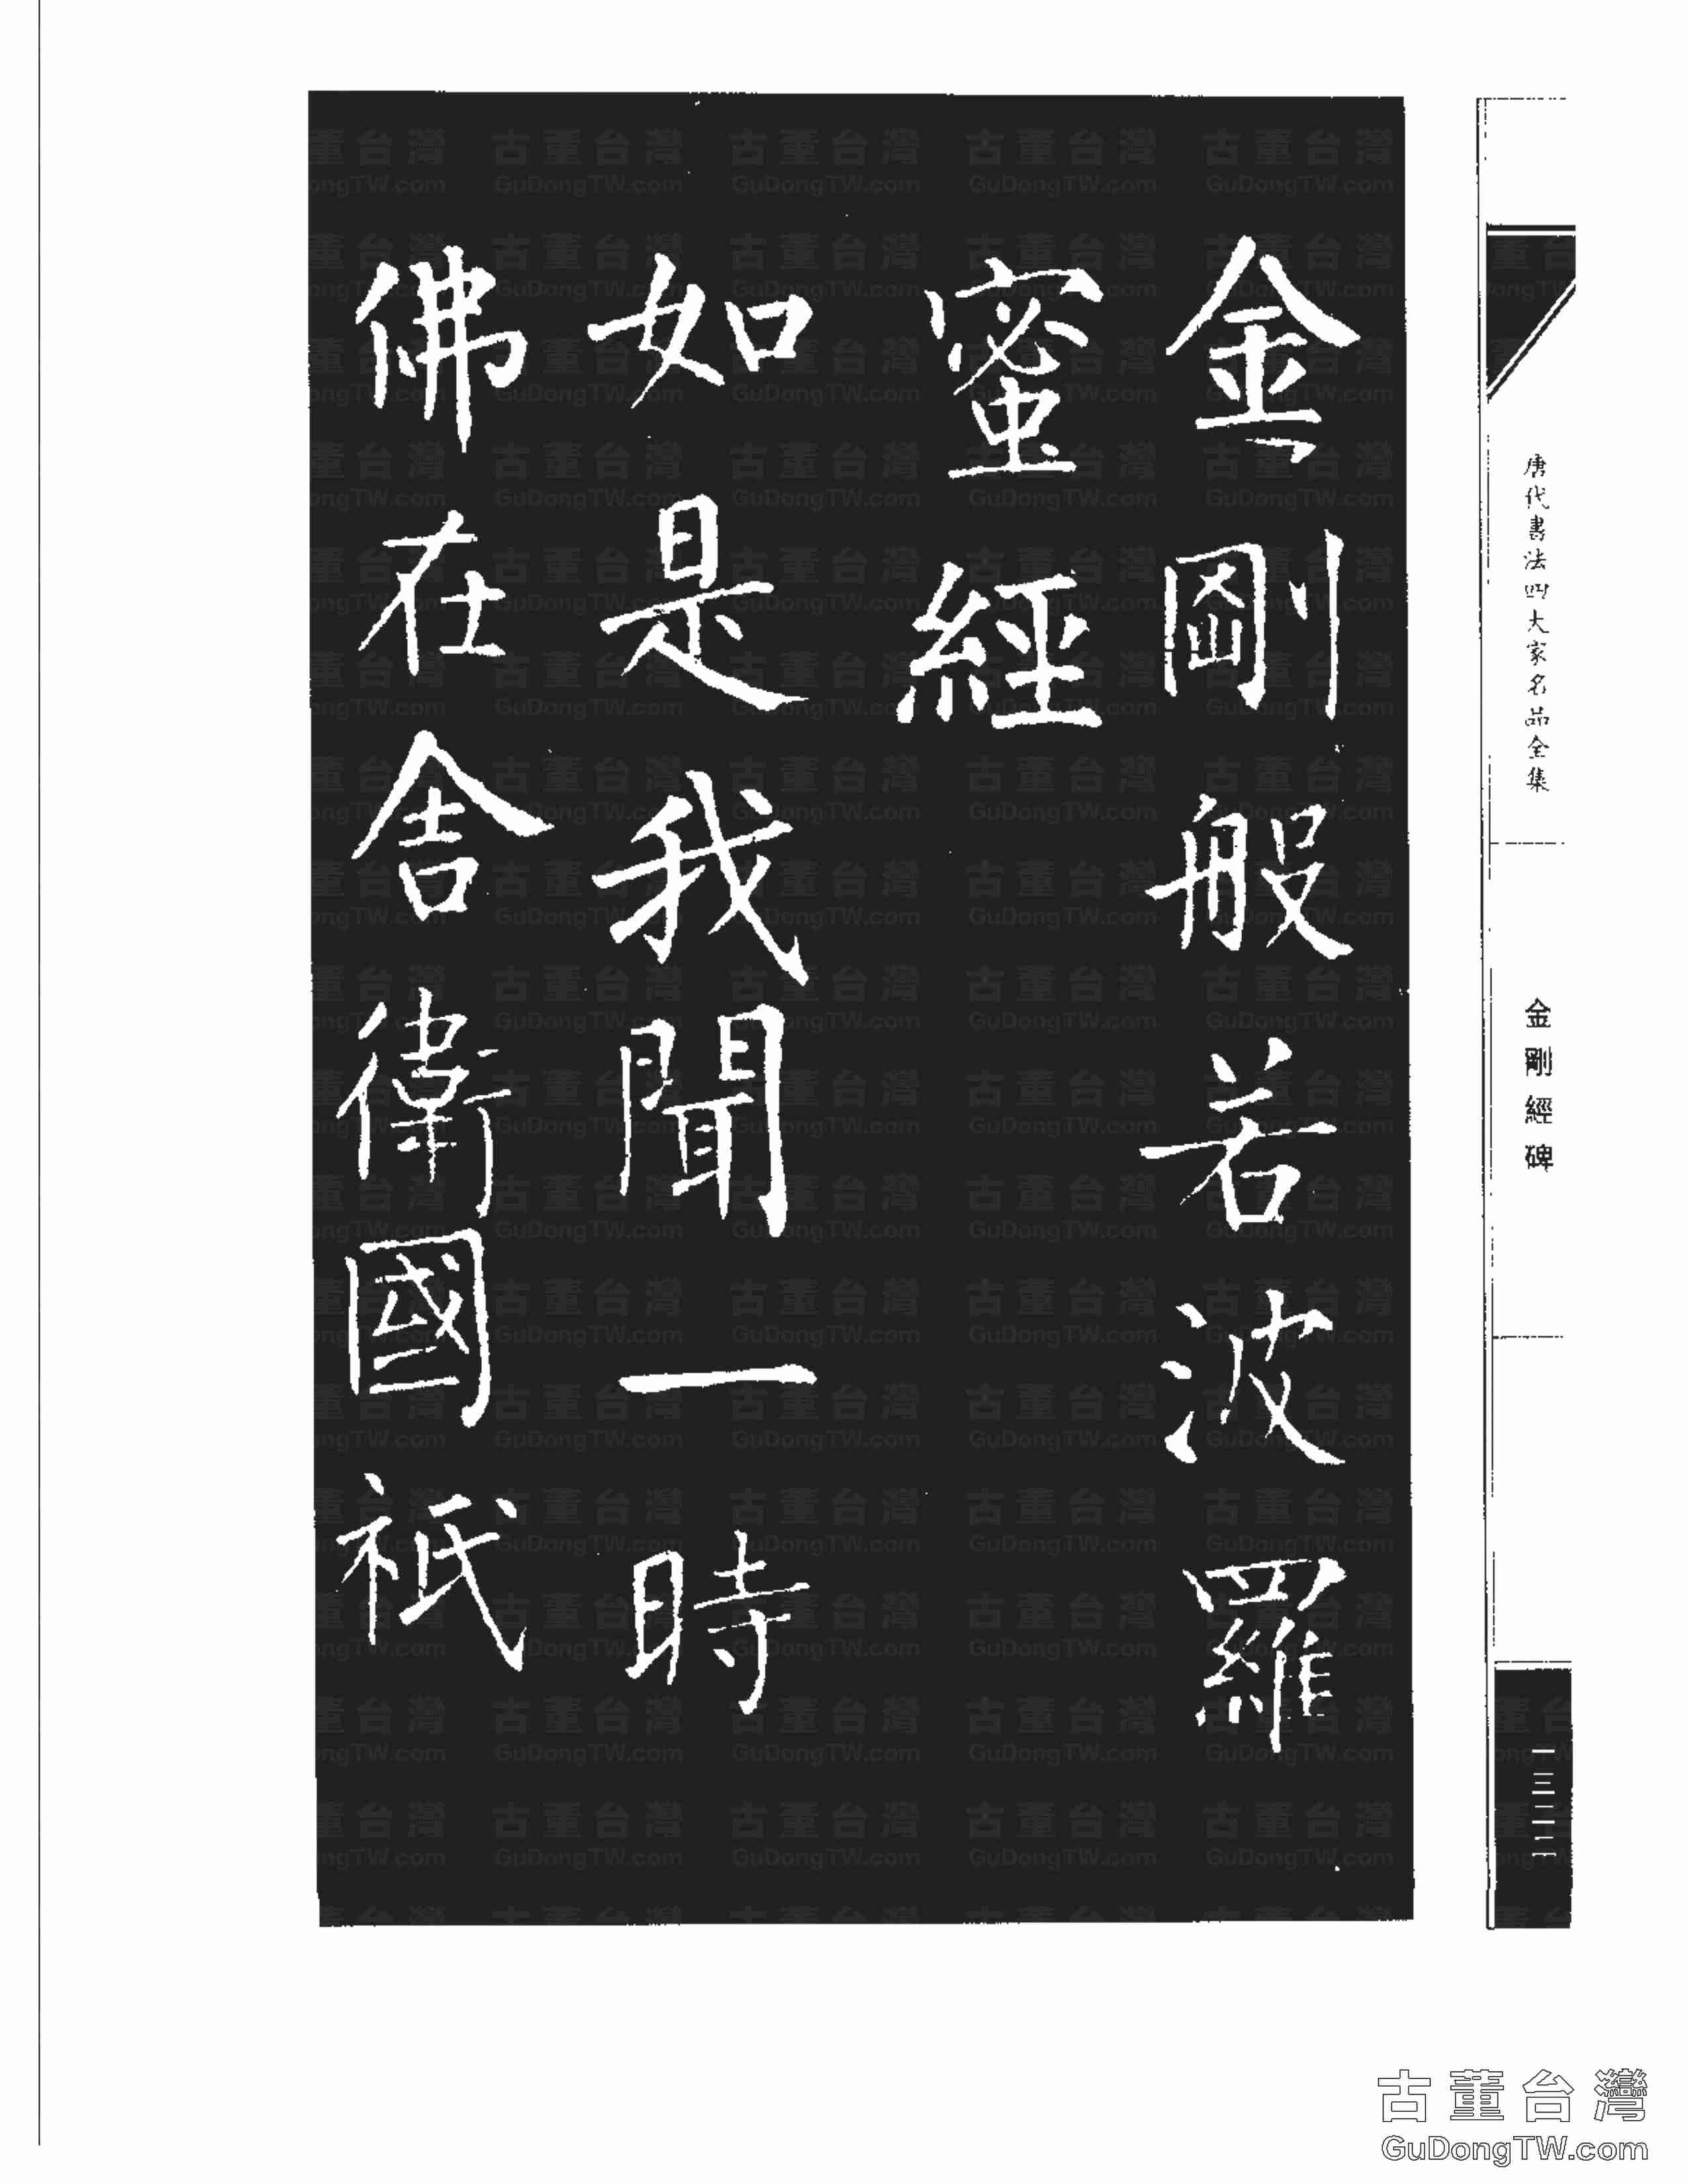 唐代書法四大家名品全集
金剛經碑
一三二二
金剛般若波羅
蜜經
如是我聞一時
佛在舍衛國祇
古董台灣
GuDongTW.com